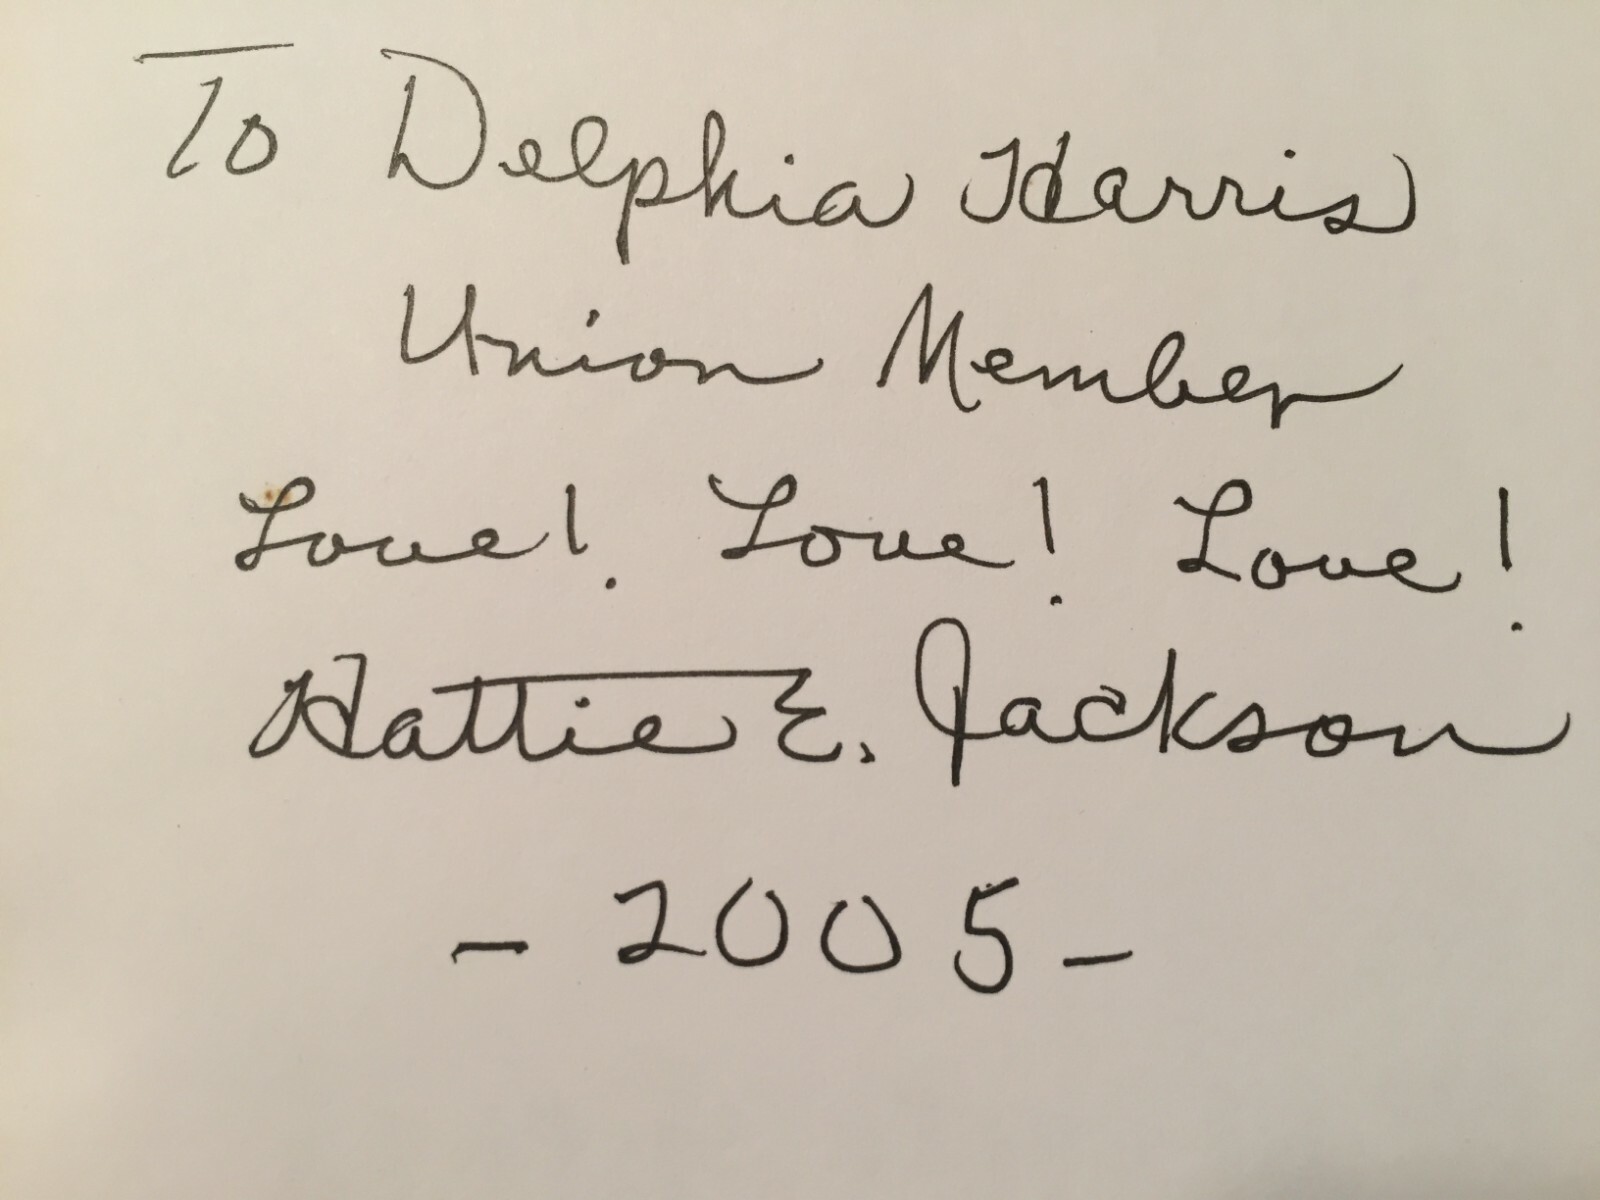 To Delphia Harris
Union Member
Love! Love! Love!
Hattie E. Jackson
- 2005 -